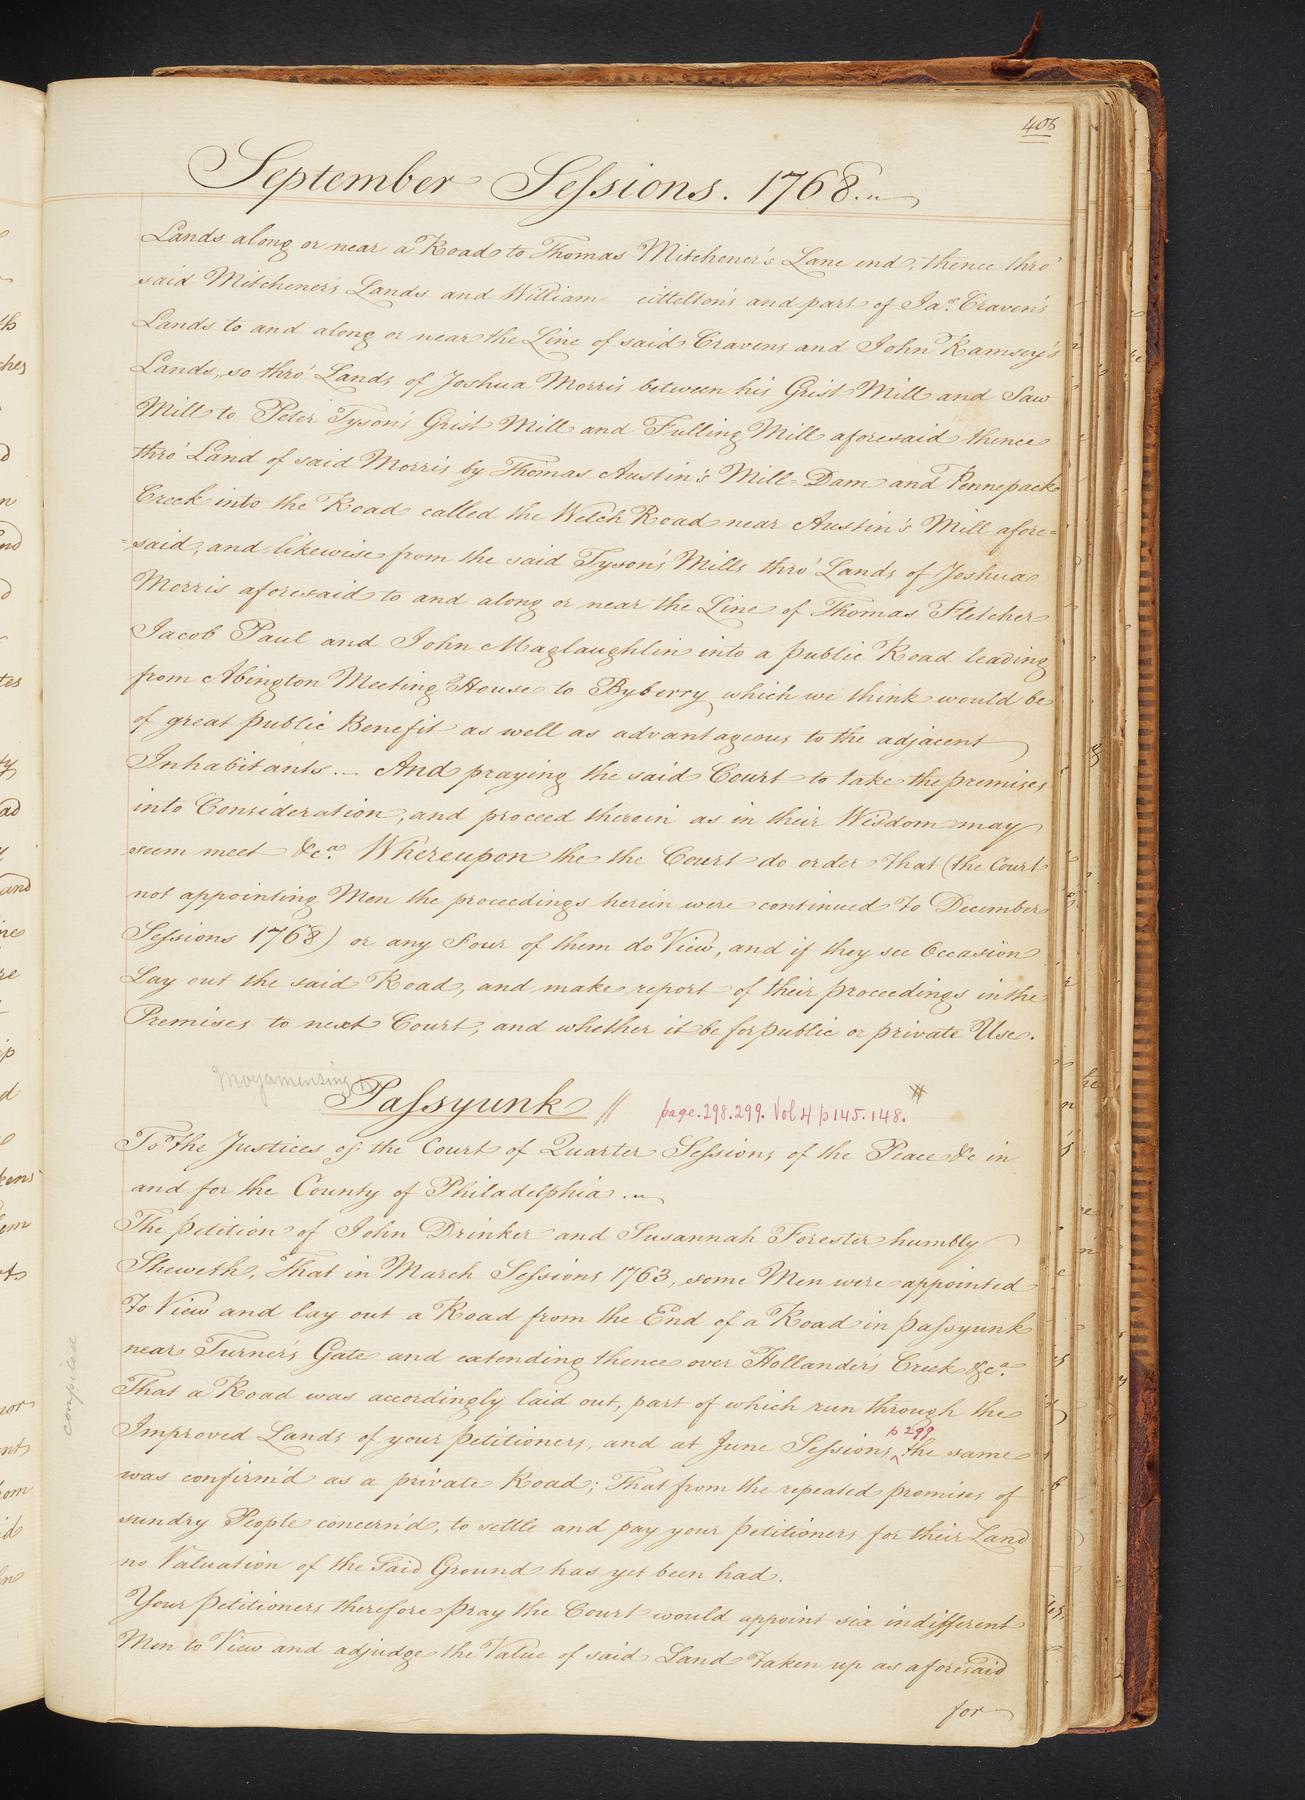 September Sessions. 1768.
Lands along or near a Road to Thomas Mitchener's Lane end, thence thro'
said Mitchener's Lands and William eittelson's and part of Jas. Craven's
Lands to and along or near the Line of said Cravens and John Ramsey's
Lands, so thro' Lands of Joshua Morris between his Grist Mill and Saw
Mill to Peter Tyson's Grist Mill and Fulling Mill aforesaid thence
thro' Land of said Morris by Thomas Austin's Mill-Dam and Pennepack
Creek into the Road called the Welch Road near Austin's Mill afore=
=said, and likewise from the said Tyson's Mills thro' Lands of Joshua
Morris aforesaid to and along or near the Line of Thomas Fletcher
Jacob Paul and John Maglaughlin into a public Road leading
from Abington Meeting House to Byberry which we think would be
of great public Benefit as well as advantageous to the adjacent
Inhabitants. — And praying the said Court to take the premises
into Consideration, and proceed therein as in their Wisdom may
seem meet &ca. Whereupon the the Court do order that (the Court
not appointing Men the proceedings herein were continued to December
Sessions 1768) or any Four of them do View, and if they see Occasion
Lay out the said Road, and make report of their proceedings in the
Premises to next Court, and whether it be for public or private Use.
Moyamensing &
Passyunk // page. 298. 299. Vol 4 p 145. 148. #
To the Justices of the Court of Quarter Sessions of the Peace &c in
and for the County of Philadelphia.
The petition of John Drinker and Susannah Forester humbly
Sheweth, That in March Sessions 1763, some Men were appointed
To View and lay out a Road from the End of a Road in passyunk
near Turner's Gate and extending thence over Hollander's Creek &ca.
That a Road was accordingly laid out, part of which run through the
p 299
Improved Lands of your petitioners, and at June Sessions ^ the same
was confirm'd as a private Road; That from the repeated promises of
sundry People concern'd, to settle and pay your petitioners for their Land
no Valuation of the said Ground has yet been had.
Your petitioners therefore pray the Court would appoint six indifferent
Men to View and adjudge the Value of said Land taken up as aforesaid
for